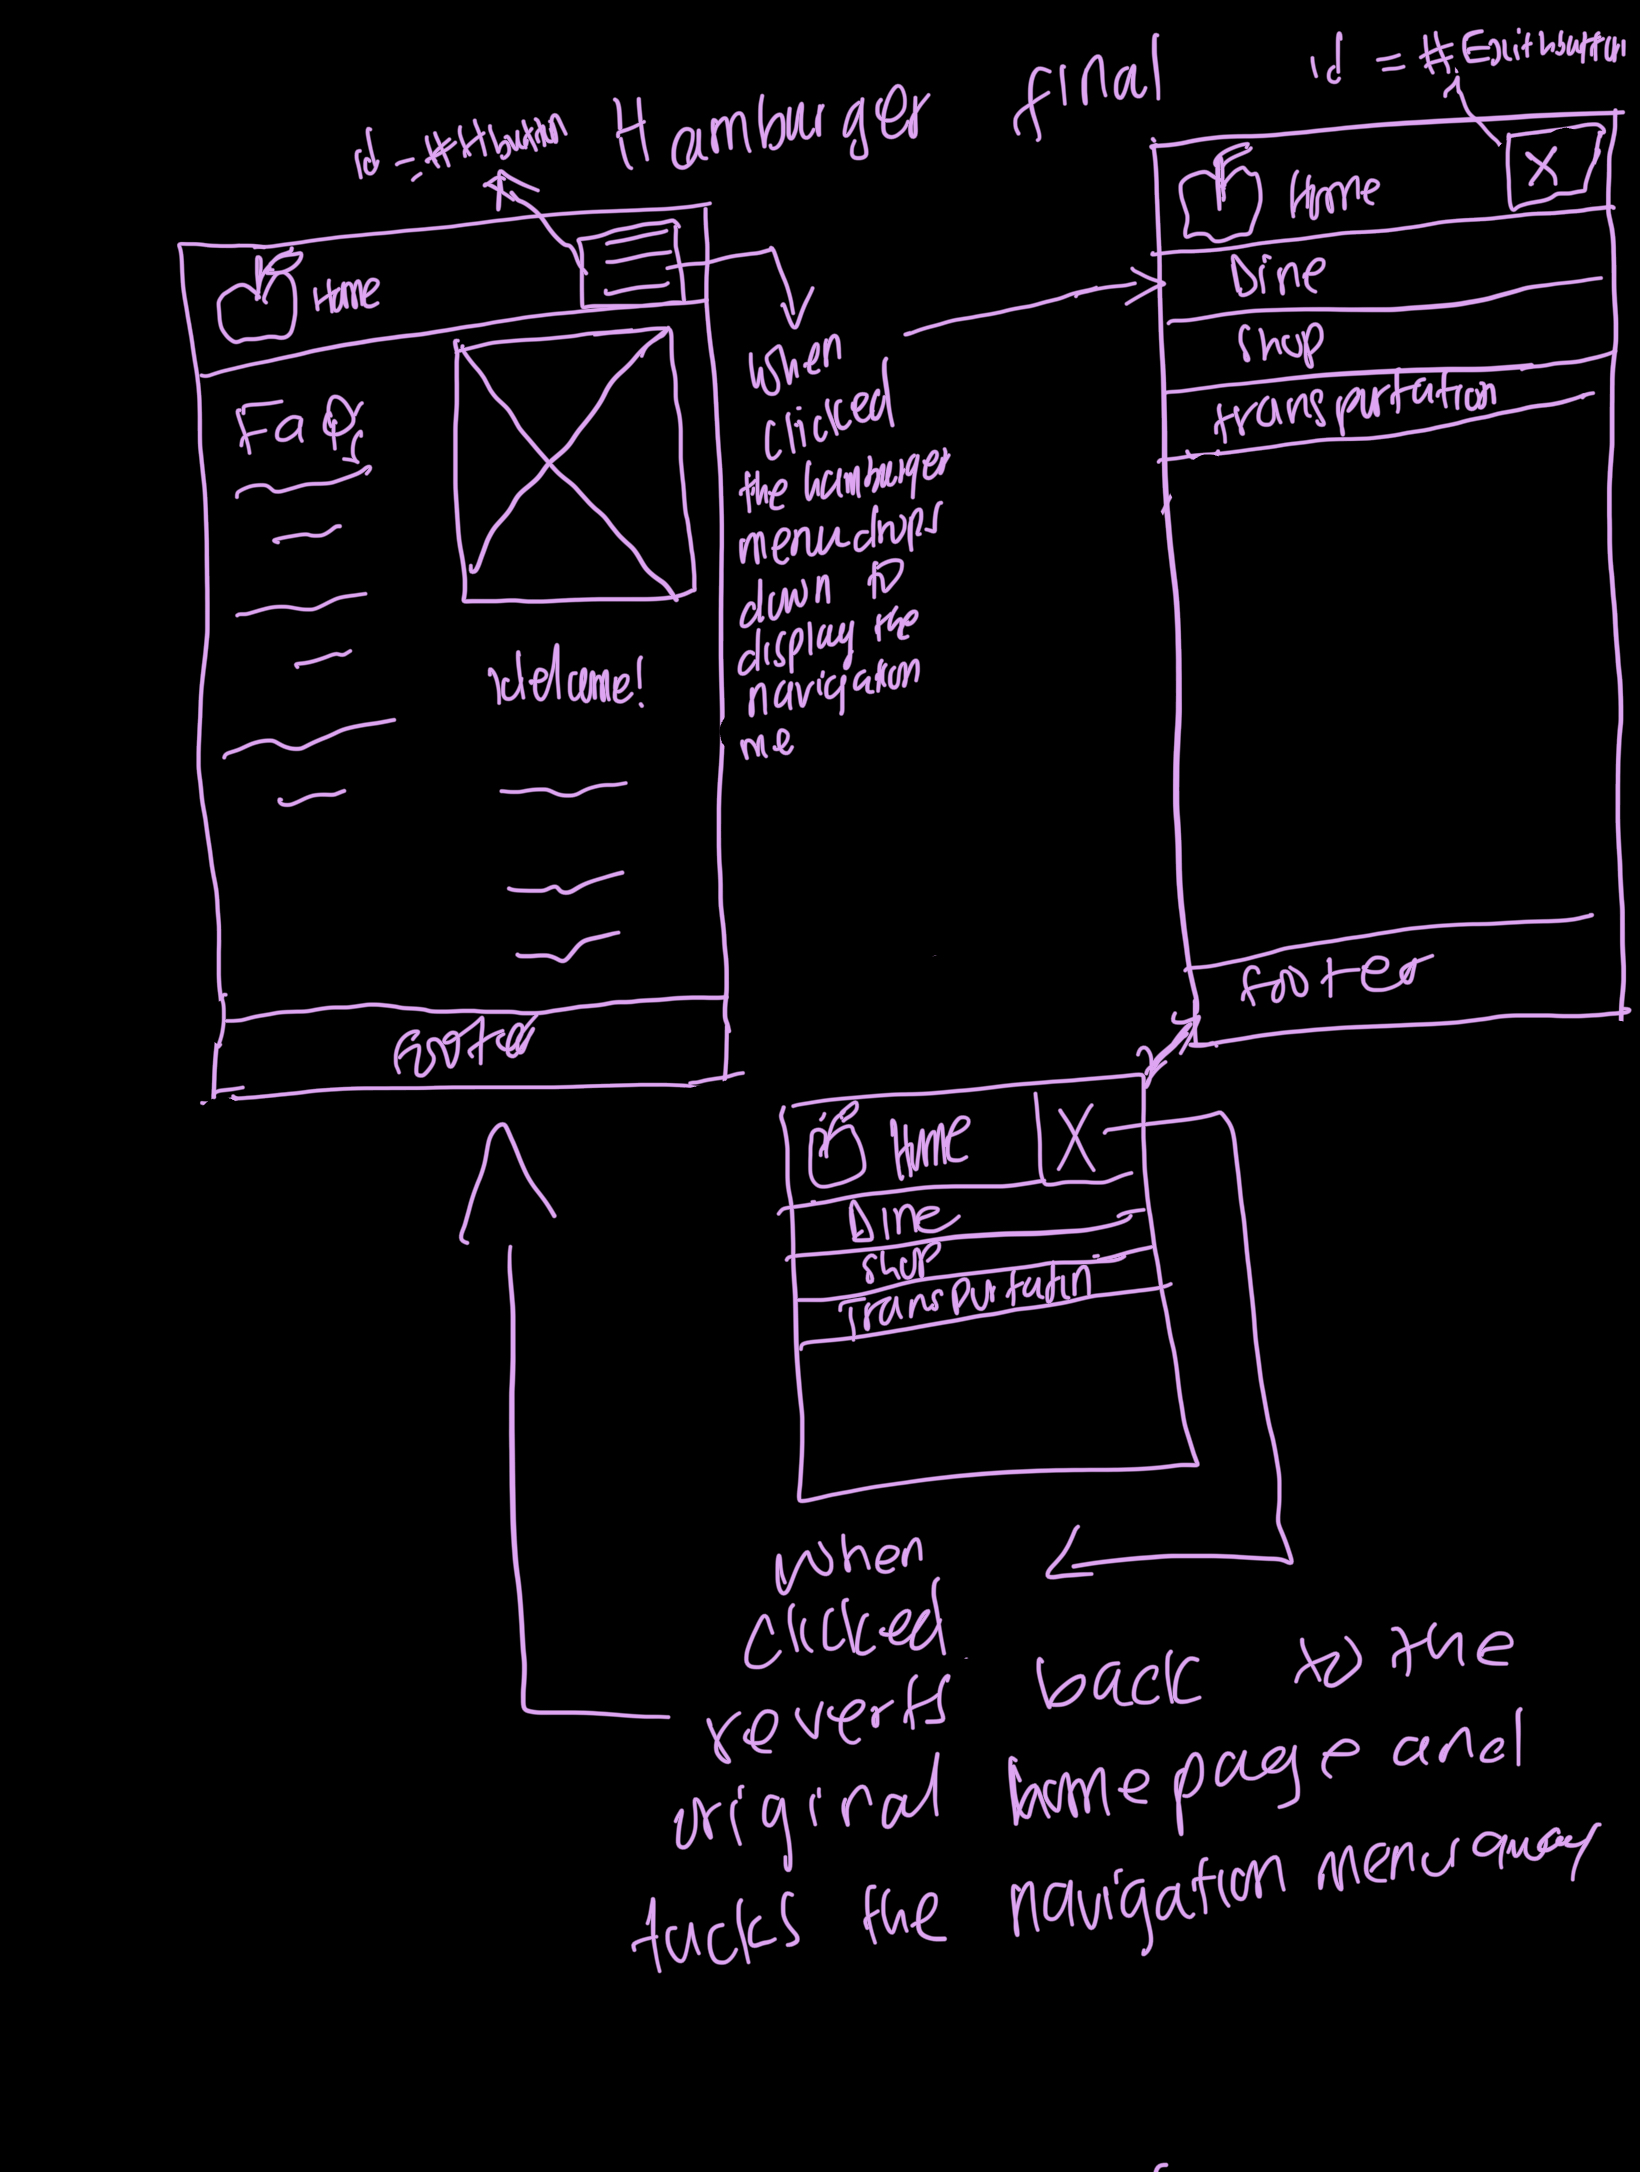 Hamburger final
id = #Hbutton
Home
FaQ
Welcome!
Footer
When
clicked
the hamburger
menu drops
down to
display the
navigation
me
id = #Exitbutton
Home
X
Dine
Shop
transportation
footer
Home
X
Dine
Shop
Transportatin
When
clicked
reverts back to the
original homepage and
tucks the navigation menu away